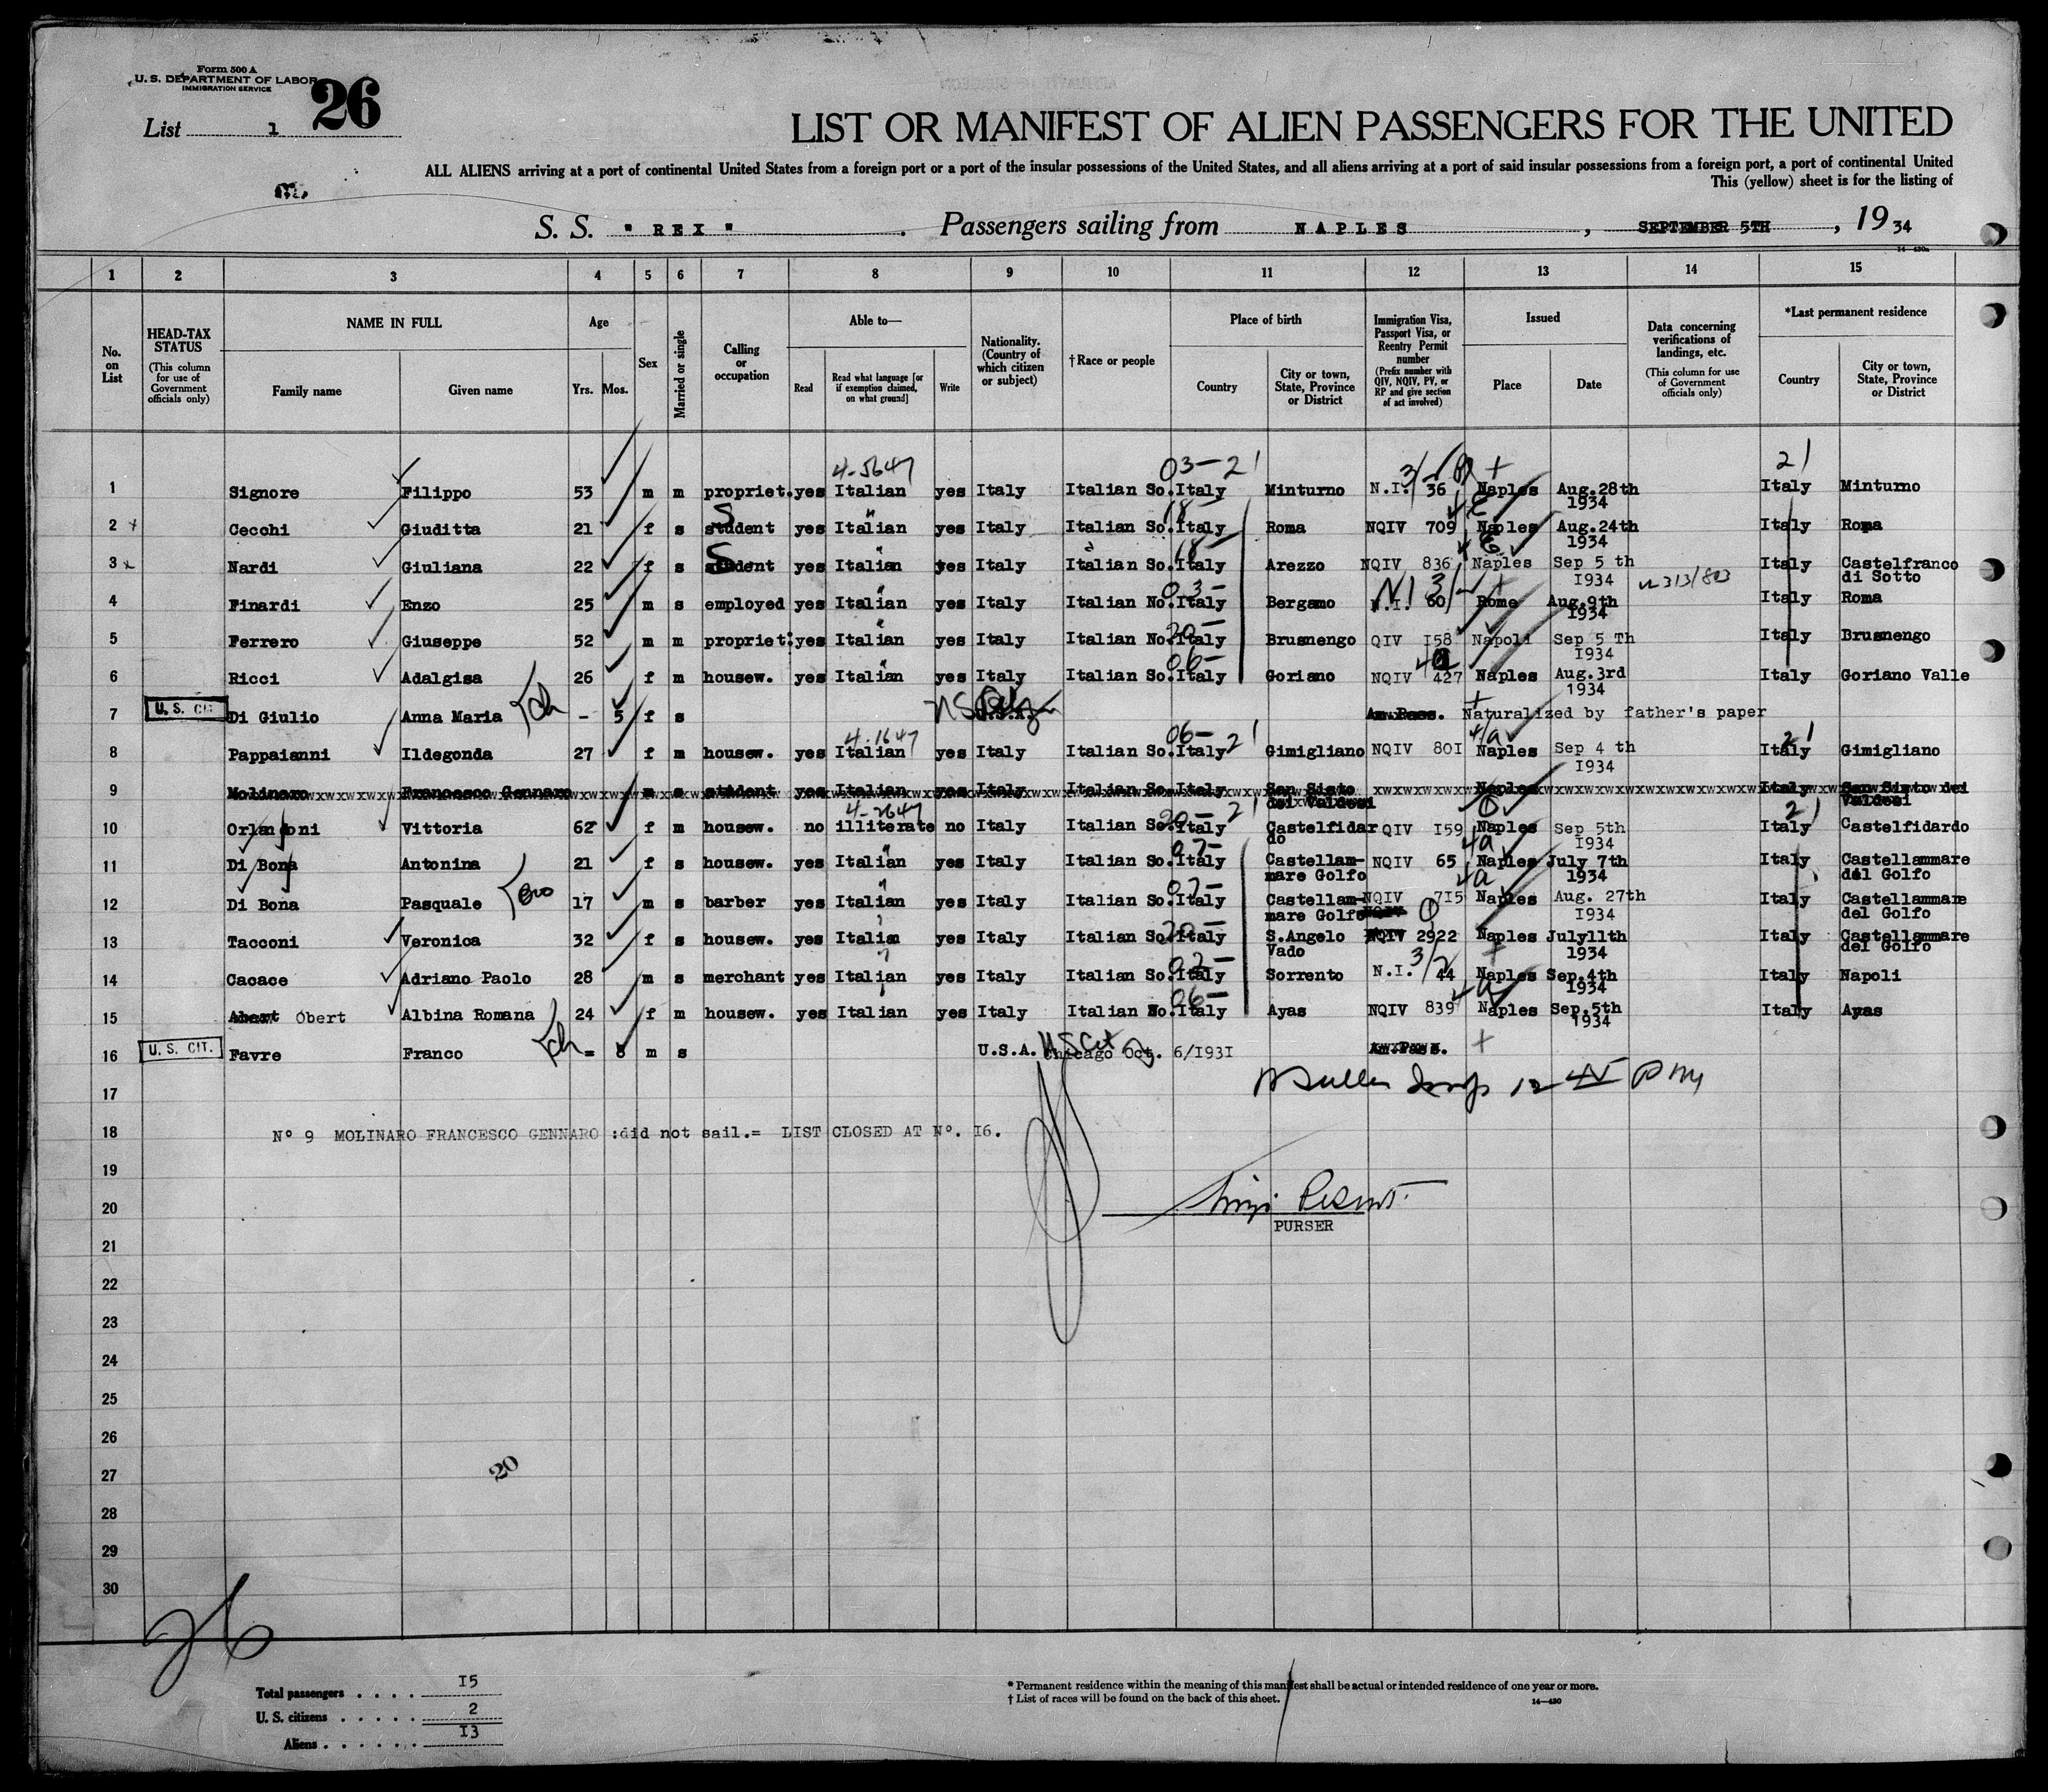 Form 500 A
U. S. DEPARTMENT OF LABOR
IMMIGRATION SERVICE
List 1 26
LIST OR MANIFEST OF ALIEN PASSENGERS FOR THE UNITED
ALL ALIENS arriving at a port of continental United States from a foreign port or a port of the insular possessions of the United States, and all aliens arriving at a port of said insular possessions from a foreign port, a port of continental United
This (yellow) sheet is for the listing of
S. S. "REX". Passengers sailing from NAPLES, SEPTEMBER 5TH, 1934
14—430a
1 2 3 4 5 6 7 8 9 10 11 12 13 14 15
No. on List
HEAD-TAX STATUS (This column for use of Government officials only)
NAME IN FULL Family name Given name
Age Yrs. Mos.
Sex
Married or single
Calling or occupation
Able to— Read Read what language [or if exemption claimed, on what ground] Write
Nationality. (Country of which citizen or subject)
† Race or people
Place of birth Country City or town, State, Province or District
Immigration Visa, Passport Visa, or Reentry Permit number (Prefix number with QIV, NQIV, PV, or RP and give section of act involved)
Issued Place Date
Data concerning verifications of landings, etc. (This column for use of Government officials only)
*Last permanent residence Country City or town, State, Province or District
4-5647 03-21 21
1 Signore Filippo 53 m m propriet. yes Italian yes Italy Italian So. Italy Minturno N.I. 3/ 36 Naples Aug.28th 1934 Italy Minturno
2 Cecchi Giuditta 21 f s student yes Italian yes Italy Italian So. Italy Roma NQIV 709 Naples Aug.24th 1934 Italy Roma
3 Nardi Giuliana 22 f s student yes Italian yes Italy Italian So. Italy Arezzo NQIV 836 Naples Sep 5 th 1934 Italy Castelfranco di Sotto
4 Finardi Enzo 25 m s employed yes Italian yes Italy Italian No. Italy Bergamo N.I. 60 Rome Aug.9th 1934 Italy Roma
5 Ferrero Giuseppe 52 m m propriet: yes Italian yes Italy Italian No. Italy Brusnengo QIV 158 Napoli Sep 5 Th 1934 Italy Brusnengo
6 Ricci Adalgisa 26 f m housew. yes Italian yes Italy Italian So. Italy Goriano NQIV 427 Naples Aug.3rd 1934 Italy Goriano Valle
7 U. S. CIT. Di Giulio Anna Maria ch - 5 f s U.S.A. Am.Pass. Naturalized by father's paper
4-1647 06- 21 21
8 Pappaianni Ildegonda 27 f m housew. yes Italian yes Italy Italian So. Italy Gimigliano NQIV 801 Naples Sep 4 th 1934 Italy Gimigliano
9 Molinaro Francesco Gennaro m s student yes Italian yes Italy Italian So. Italy San Sisto dei Valdesi Naples Italy San Sisto dei Valdesi
4-2647 20- 21 21
10 Orlandoni Vittoria 62 f m housew. no illiterate no Italy Italian So. Italy Castelfidardo QIV 159 Naples Sep 5th 1934 Italy Castelfidardo
11 Di Bona Antonina 21 f s housew. yes Italian yes Italy Italian So. Italy Castellammare Golfo NQIV 65 Naples July 7th 1934 Italy Castellammare del Golfo
12 Di Bona Pasquale bro 17 m s barber yes Italian yes Italy Italian So. Italy Castellammare Golfo NQIV 715 Naples Aug. 27th 1934 Italy Castellammare del Golfo
13 Tacconi Veronica 32 f s housew. yes Italian yes Italy Italian So. Italy S.Angelo Vado NQIV 2922 Naples July11th 1934 Italy Castellammare del Golfo
14 Cacace Adriano Paolo 28 m s merchant yes Italian yes Italy Italian So. Italy Sorrento N.I. 3/2 44 Naples Sep.4th 1934 Italy Napoli
15 Abert Obert Albina Romana 24 f m housew. yes Italian yes Italy Italian No. Italy Ayas NQIV 839 Naples Sep.5th 1934 Italy Ayas
16 U. S. CIT. Favre Franco ch = 8 m s U.S.A. US Cit Chicago Oct. 6/1931 Am.Pass.
17
18 N° 9 MOLINARO FRANCESCO GENNARO :did not sail.= LIST CLOSED AT N°. 16.
19
20
PURSER
21
22
23
24
25
26
27 20
28
29
30
26
Total passengers . . . . 15
U. S. citizens . . . . . 2
Aliens . . . . . . 13
* Permanent residence within the meaning of this manifest shall be actual or intended residence of one year or more.
† List of races will be found on the back of this sheet.
14—430